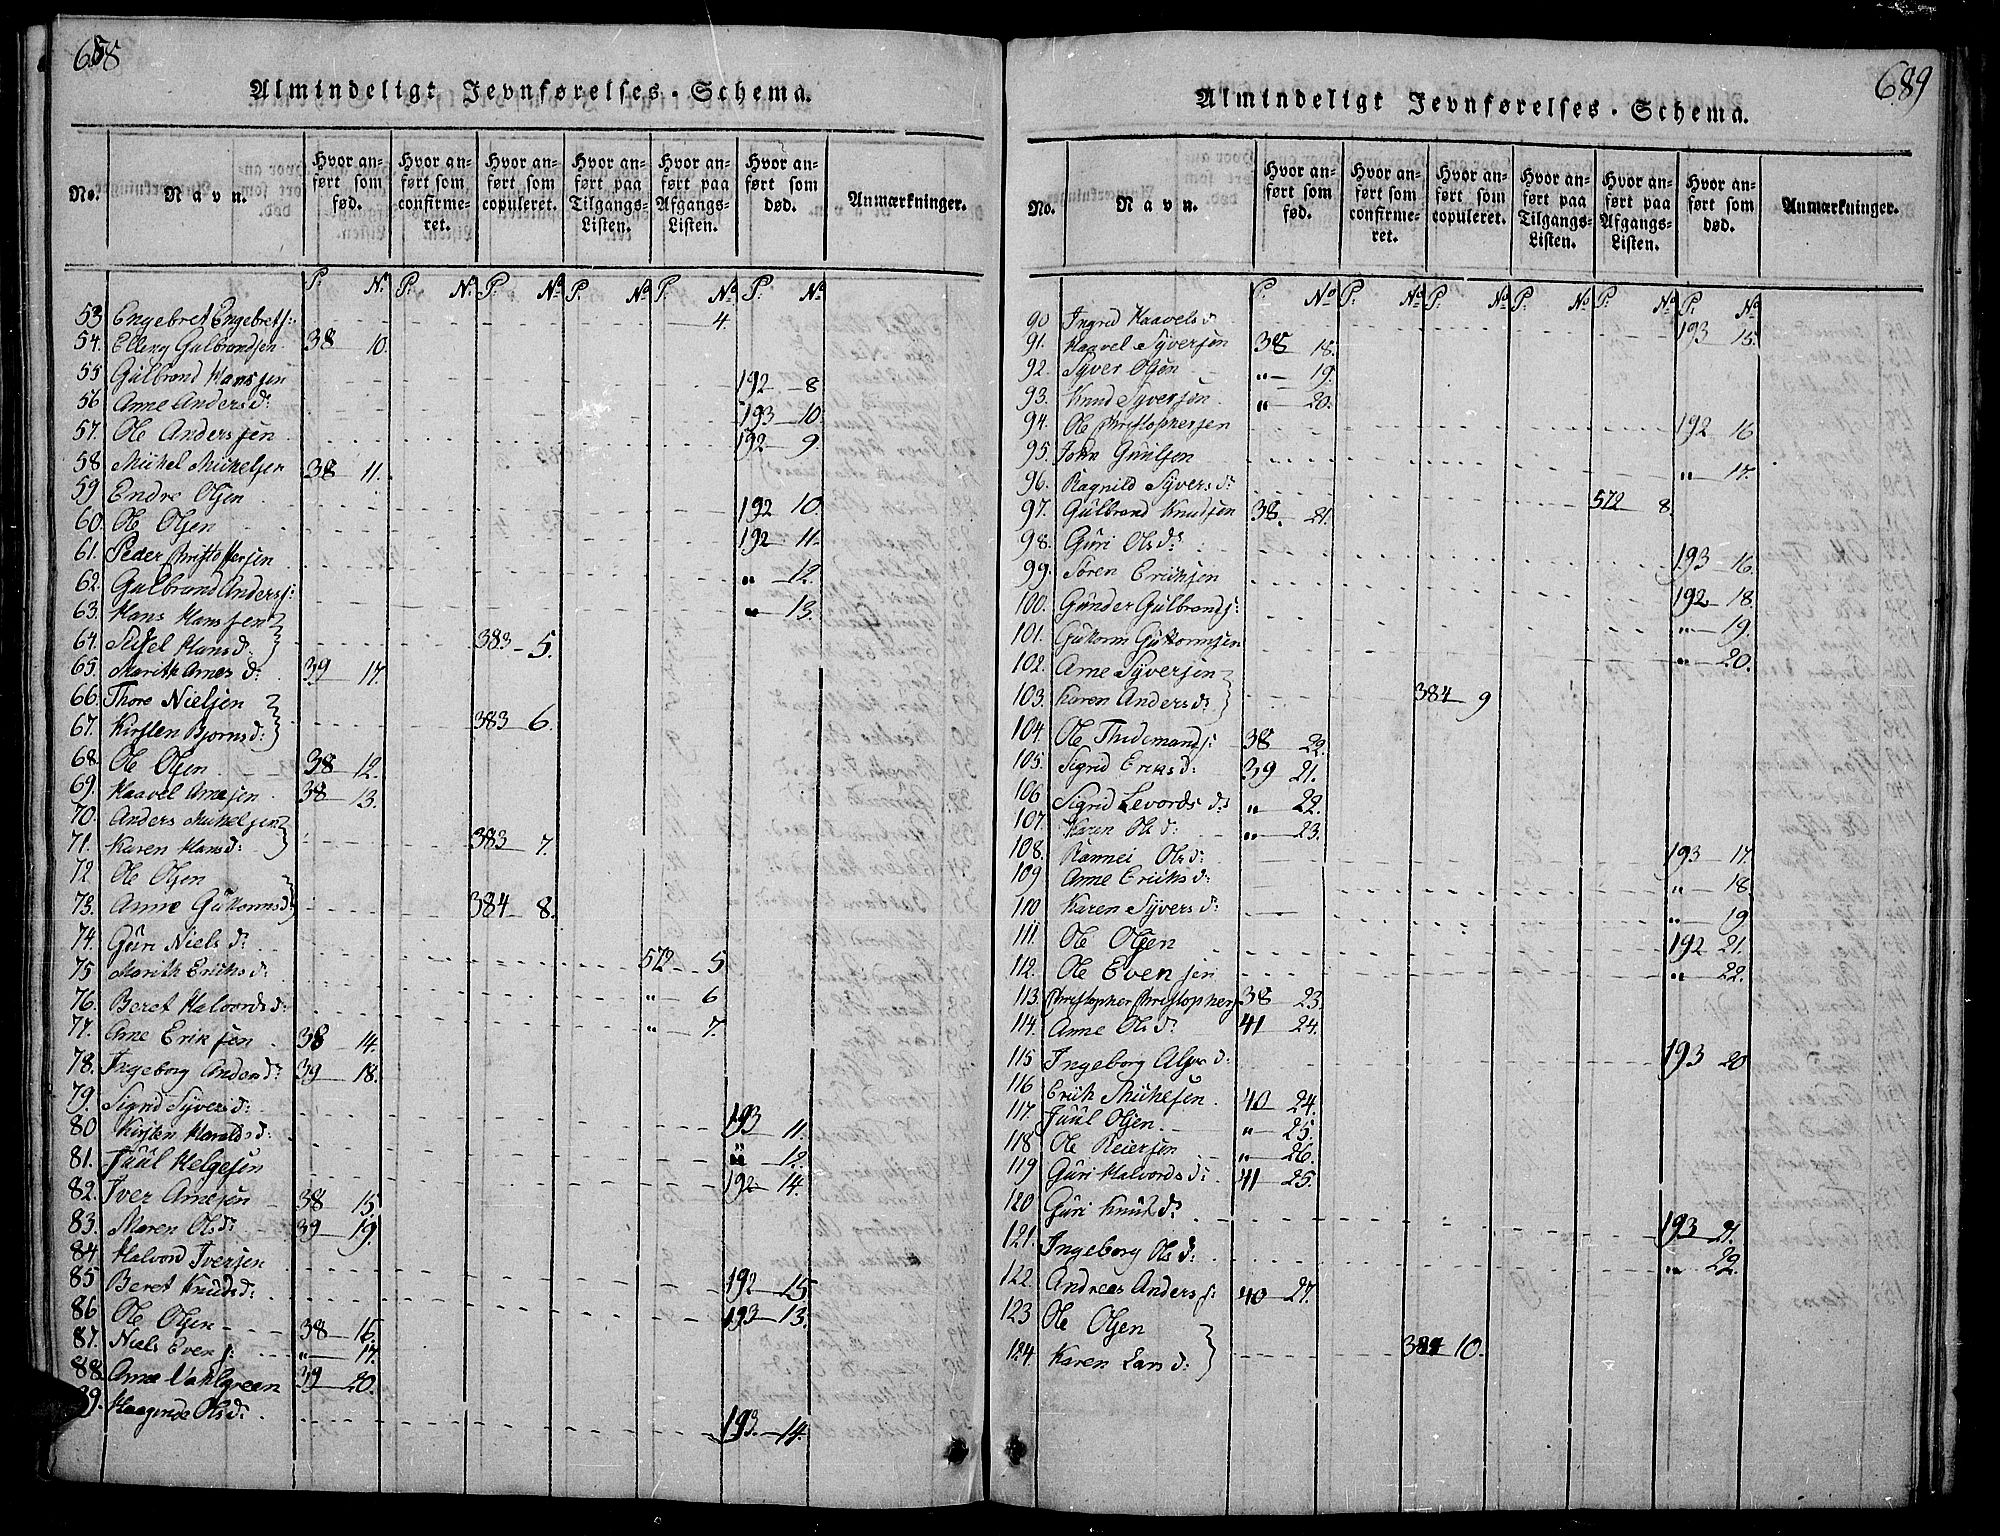 688
Almindeligt Jevnførelses-Schema.
No. Navn. Hvor anført som fød. Hvor anført som confirmeret. Hvor anført som copuleret. Hvor anført paa Tilgangs-Listen. Hvor anført paa Afgangs-Listen. Hvor anført som død. Anmærkninger.
P. N. P. N. P. No P. No P. No P. No
53 Engebret Engebretj: 4.
54. Elleng Gulbrandsen 38 10.
55 Gulbrand Hansen 192 8
56 Anne Andersd: 193 10.
57. Ole Andersen 192 9.
58 Mikkel Mikkelsen 38 11.
59 Endre Olsen 192 10.
60. Ole Olsen 192 11.
61. Peder Christoffersen " 12.
62. Gulbrand Andersj: " 13.
63. Hans Hansen
64. Sidsel Hansd: 383 5.
65. Marith Arnesd: 39 17.
66. Thore Nielsen
67. Kirsten Bjornsd: 383 6.
68. Ole Olsen 38 12.
69. Haavel Arnesen 38 13.
70. Anders Mikkelsen
71. Karen Hansd: 383 7.
72 Ole Olsen
73. Anne Guttormsd: 384 8.
74. Guri Nielsd: 572 5
75. Marith Eriksd: " 6
76. Beret Halvordsd: " 7.
77. Arne Eriksen 38 14.
78. Ingeborg Andersd: 39 18.
79. Sigrid Syversd: 193 11.
80 Kirsten Haraldsd: " 12.
81. Juul Helgesen 192 14.
82. Iver Arnesen 38 15.
83. Maren Olsd: 39 19.
84. Halvord Iversen 192 15
85. Beret Knudsd: 193 13.
86 Ole Olsen 38 16.
87. Niels Evensj: " 17.
88. Anne Vahlgreen 39 20.
89. Haagende Olsd: 193 14.
689
Almindeligt Jevnførelses-Schema.
No. Navn. Hvor anført som fød. Hvor anført som confirmeret. Hvor anført som copuleret. Hvor anført paa Tilgangs-Listen. Hvor anført paa Afgangs-Listen. Hvor anført som død. Anmærkninger.
P. No P. No P. No P. No P. No P. No
90 Ingrid Haavelsd: 193 15.
91. Haavel Syversen 38 18.
92. Syver Olsen " 19.
93. Knud Syversen " 20.
94. Ole Christophersen 192 16
95. John 	 " 17.
96. Ragnild Syversd: 572 8.
97. Gulbrand Knudsen 38. 21.
98. Guri Olsd: 193 16.
99. Søren Eriksen 192 18.
100. Gunder Gulbrandj: " 19.
101. Guttorm Guttormsen " 20.
102. Arne Syversen
103. Karen Andersd: 384 9
104. Ole Thidemandj: 38 22.
105. Sigrid Eriksd: 39 21.
106 Sigrid Levordsd: " 22.
107. Karen Olsd: " 23.
108. Rannei Olsd: 193 17.
109 Anne Eriksd: " 18.
110 Karen Syversd: " 19.
111. Ole Olsen 192 21.
112. Ole Evensen " 22.
113. Christopher Christophersj 38 23.
114. Anne Olsd: 41 24.
115 Ingeborg d: 193 20
116 Erich Mikkelsen 40 24.
117. Juul Olsen " 25.
118 Ole Reiersen " 26.
119 Guri Halvordsd: 41 25.
120 Guri Knutsd: 193 21.
121. Ingeborg Olsd: " 22.
122. Andreas Andersj: 40 27.
123 Ole Olsen
124 Karen Larsd: 384 10.